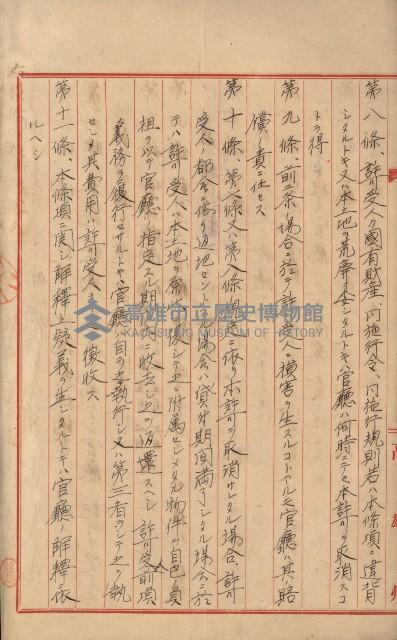 第八條、許可受人カ國有財産法、同施行令、同施行規則若ハ本條項ニ違背
シタルトキ又ハ本土地ヲ荒廢セシメタルトキハ官廳ハ何時ニテモ本許可ヲ取消スコ
トヲ得
第九條、前二条ノ場合ニ於テ許可受人ニ損害ヲ生スルコトアルモ官廳ハ其ノ賠
償ノ責ニ任セス
第十條、第七條又ハ第八條ノ規定ニ依リ本許可ヲ取消サレタル場合、許可
受人ノ都合ニ依リ返地セントスル場合ハ貸付期間満了シタル場合ニ於
テハ許可受人ハ本土地ヲ原状ニ復シ土地ニ附属セシメタル物件ヲ自己ノ負
担ヲ以テ官廳ノ指定スル期間ニ收去シ之ヲ返還スヘシ許可受人前項
ノ義務ヲ履行セサルトキハ官廳ハ自ラ執行シ又ハ第三者ヲシテ之ヲ執行
セシメ其ノ費用ハ許可受人ヨリ徴收ス
第十一條、本條項ニ関シ解釋上疑義ヲ生シタルトキハ官廳ノ解釋ニ依
ルヘシ
高雄市立歷史博物館
KAOHSIUNG MUSEUM OF HISTORY